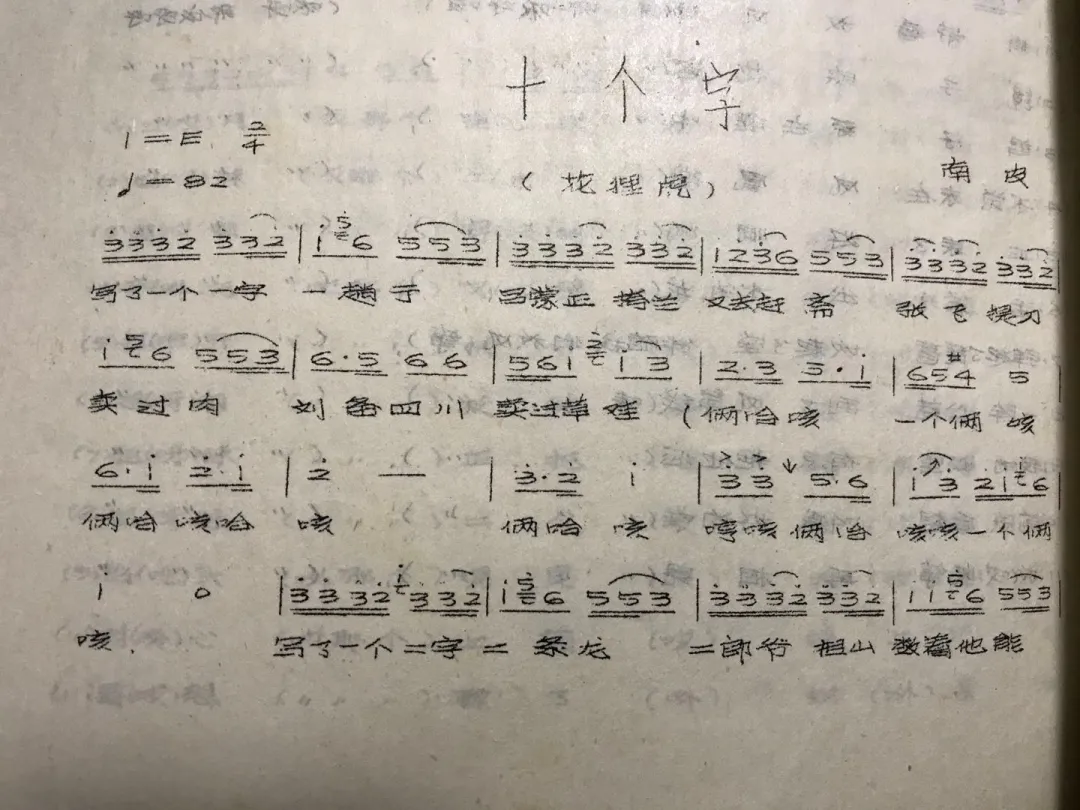 十个字
1=E 2/4
♩=82 (花狸虎) 南皮
3332 332 | i 5 6 553 | 3332 332 | 1236 553 | 3332 332
写了一个一字 一趟于 吕蒙正 捎兰 又去赶 斋 张飞提刀
i 5 6 553 | 6·5 66 | 561 2 i3 | 2·3 5·i | 6 5 #4 5 |
卖过肉 刘备四川 卖过草鞋 (俩哈咳 一个俩 咳
6·i 2·i | 2 — | 3·2 i | 33 5·6 | i3 2i i 6
俩哈 咳哈 咳 俩哈 咳 咳俩哈 咳咳一个俩
i 0 | 3332 i 332 | i 5 6 553 | 3332 332 | ii 5 6 553 |
咳. 写了一个二字二条龙 二郎爷 担山 数着他能